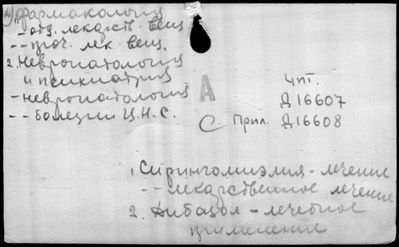 1) фармакология
- отд. лекарств. вещ.
-- проч. лек. вещ.
2. Невропатология
и психиатрия
- невропатология
-- болезни Ц.Н.С.
А
чит.
Д16607
С Прил. Д16608
1. Сирингомиэлия - лечение
-- лекарственное лечение
2. Дибазол - лечебное
применение